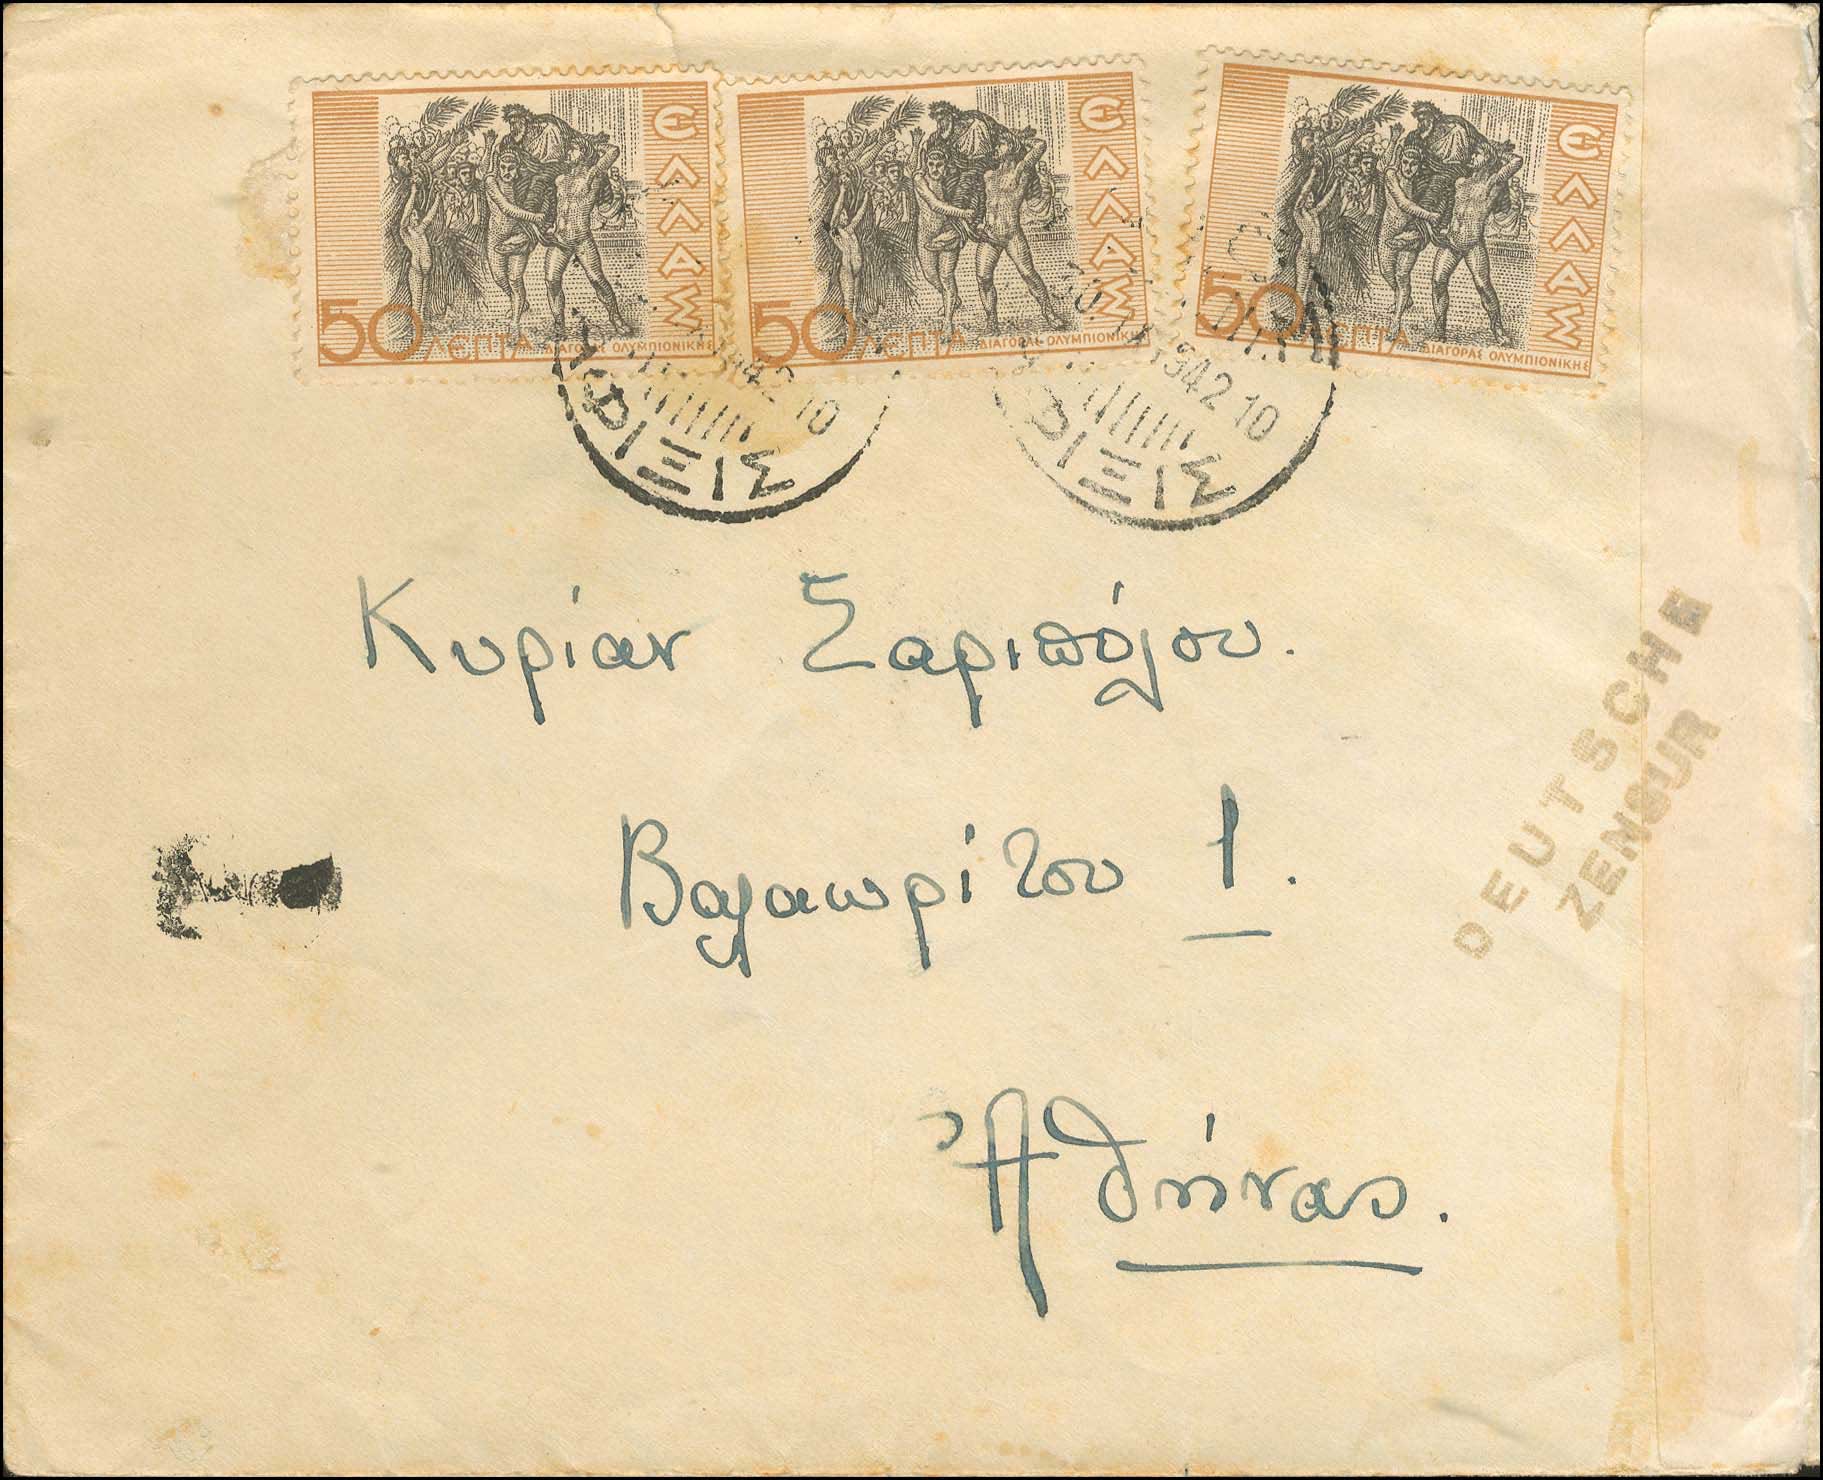 ΕΛΛΑΣ
50 ΛΕΠΤΑ ΔΙΑΓΟΡΑΣ ΟΛΥΜΠΙΟΝΙΚΗΣ
ΕΛΛΑΣ
50 ΛΕΠΤΑ ΔΙΑΓΟΡΑΣ ΟΛΥΜΠΙΟΝΙΚΗΣ
ΕΛΛΑΣ
50 ΛΕΠΤΑ ΔΙΑΓΟΡΑΣ ΟΛΥΜΠΙΟΝΙΚΗΣ
942 10
ΑΦΙΞΙΣ
1942 10
ΦΙΞΙΣ
Κυρίαν Σαριπόλου.
Βαλαωρίτου 1.
Ἀθήνας.
DEUTSCHE
ZENSUR